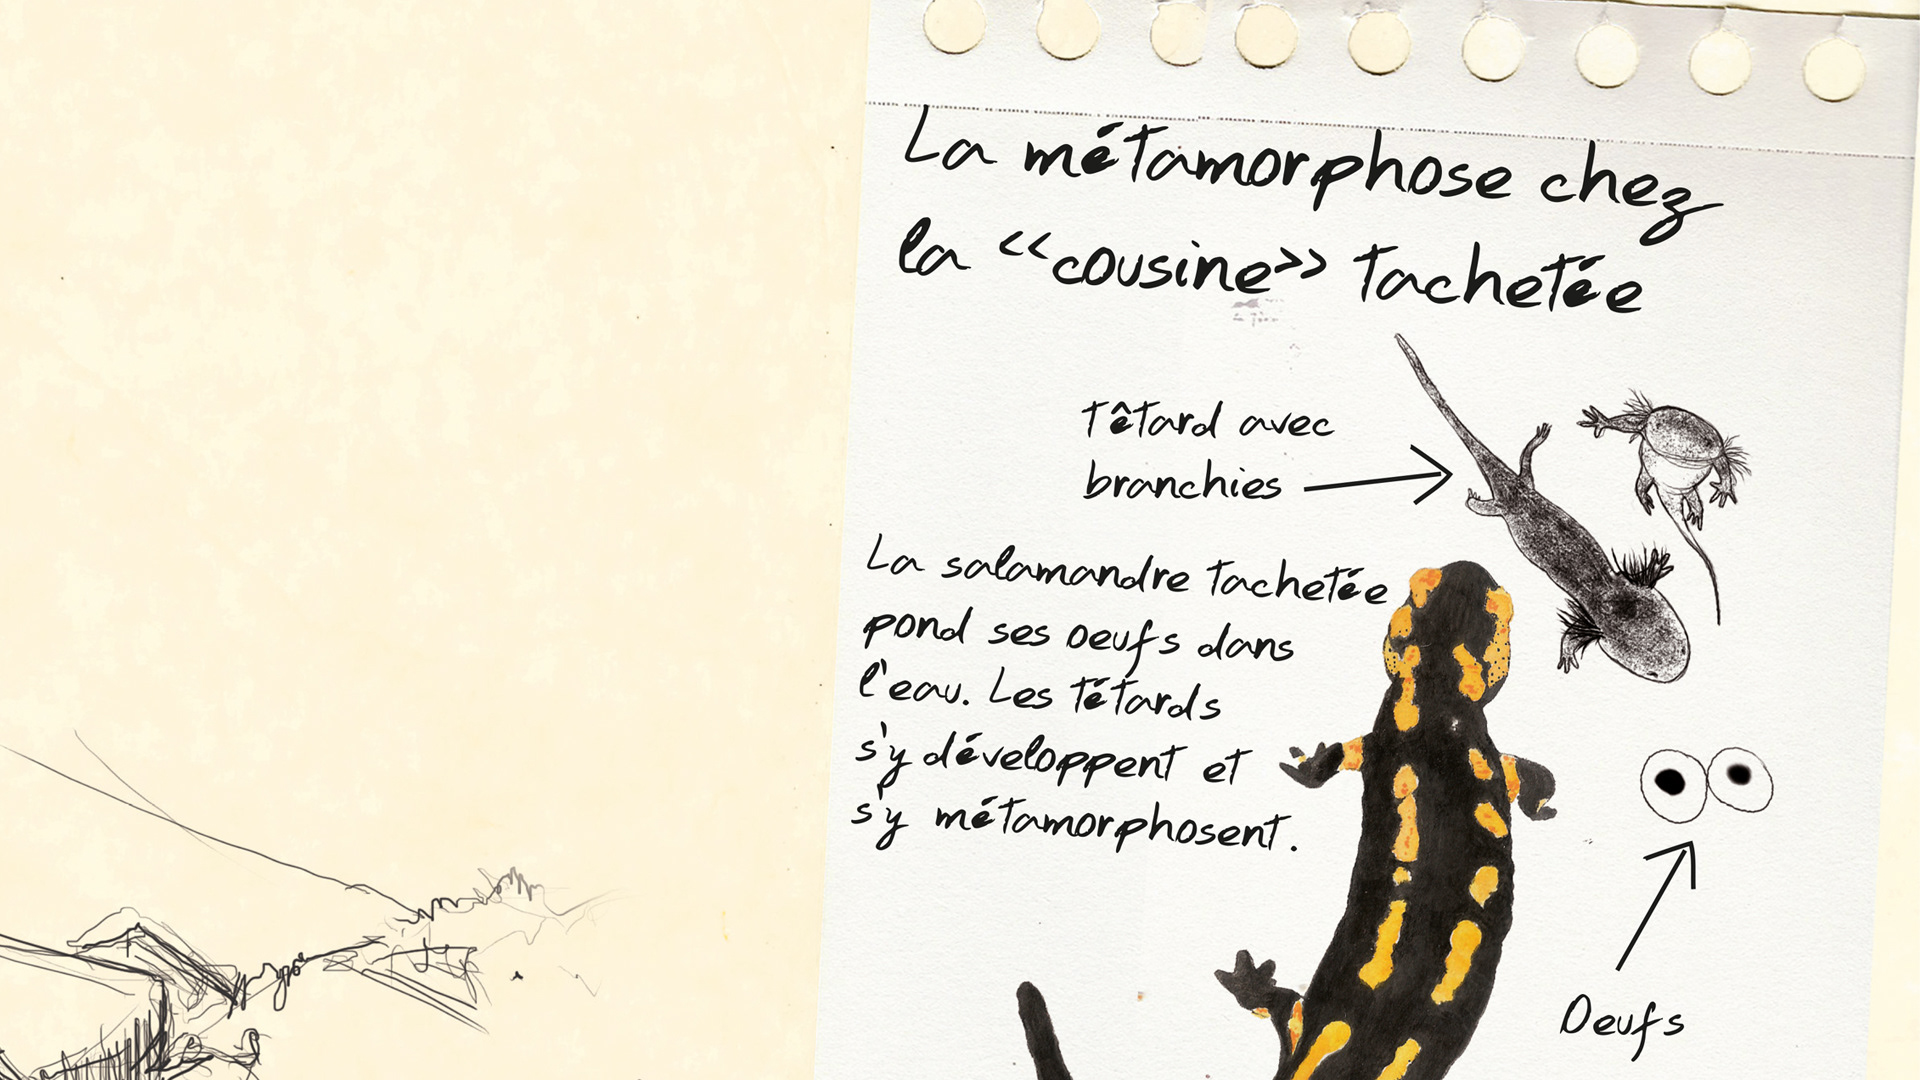 La métamorphose chez
la <<cousine>> tachetée
têtard avec
branchies
La salamandre tachetée
pond ses oeufs dans
l'eau. Les tétards
s'y développent et
s'y métamorphosent.
Oeufs